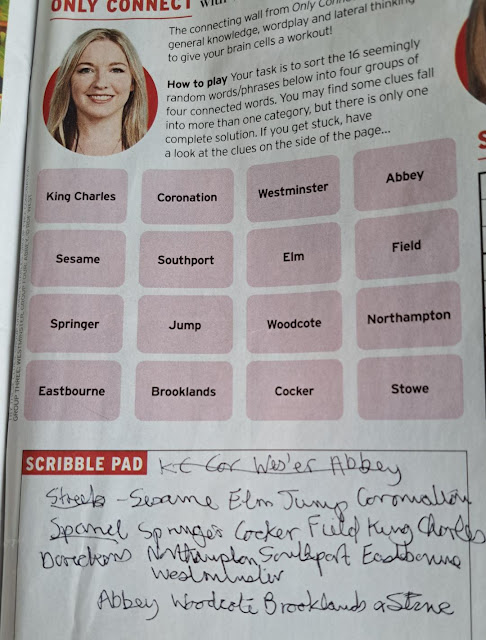 ONLY CONNECT with
The connecting wall from Only Conne
general knowledge, wordplay and lateral thinking
to give your brain cells a workout!
How to play Your task is to sort the 16 seemingly
random words/phrases below into four groups of
four connected words. You may find some clues fall
into more than one category, but there is only one
complete solution. If you get stuck, have
a look at the clues on the side of the page...
King Charles Coronation Westminster Abbey
Sesame Southport Elm Field
Springer Jump Woodcote Northampton
Eastbourne Brooklands Cocker Stowe
SCRIBBLE PAD K C Cor Wes'er Abbey
Streets - Sesame Elm Jump Coronation
Spaniel Springer Cocker Field King Charles
Directions Northampton Southport Eastbourne
Westminster
Abbey Woodcote Brooklands & Stowe